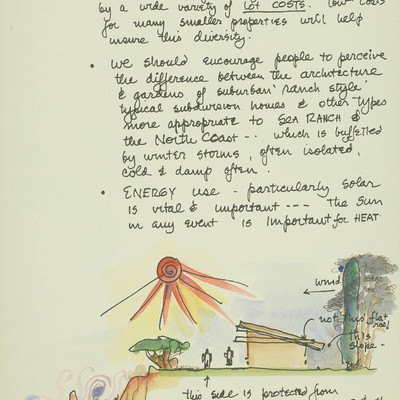 by a wide variety of LOT COSTS. Low costs
for many smaller properties will help
insure this diversity.
• We should encourage people to perceive
the difference between the architecture
& gardens of suburban 'ranch style'
typical subdivision homes & other types
more appropriate to SEA RANCH &
the North Coast -- which is buffetted
by winter storms, often isolated,
cold & damp often.
• ENERGY use - particularly solar
is vital & important --- The Sun
in any event is important for HEAT
wind
not this flat roof
this
slope -
This side is protected from